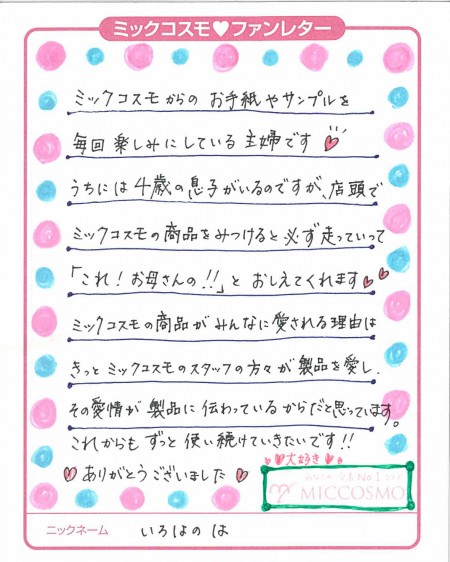 ミックコスモ♥ファンレター
ミックコスモからの お手紙やサンプルを
毎回 楽しみにしている 主婦です
うちには 4歳の息子がいるのですが、店頭で
ミックコスモの商品をみつけると 必ず走っていって
「これ！お母さんの!!」と おしえてくれます
ミックコスモの商品が みんなに愛される理由は
きっと ミックコスモのスタッフの方々 が 製品を愛し、
その愛情が 製品に 伝わっているからだと思っています。
これからも ずっと 使い続けていきたいです!!
♡ありがとうございました♡
♡♡大好き♡♡
MICCOSMO
ニックネーム いろはの は